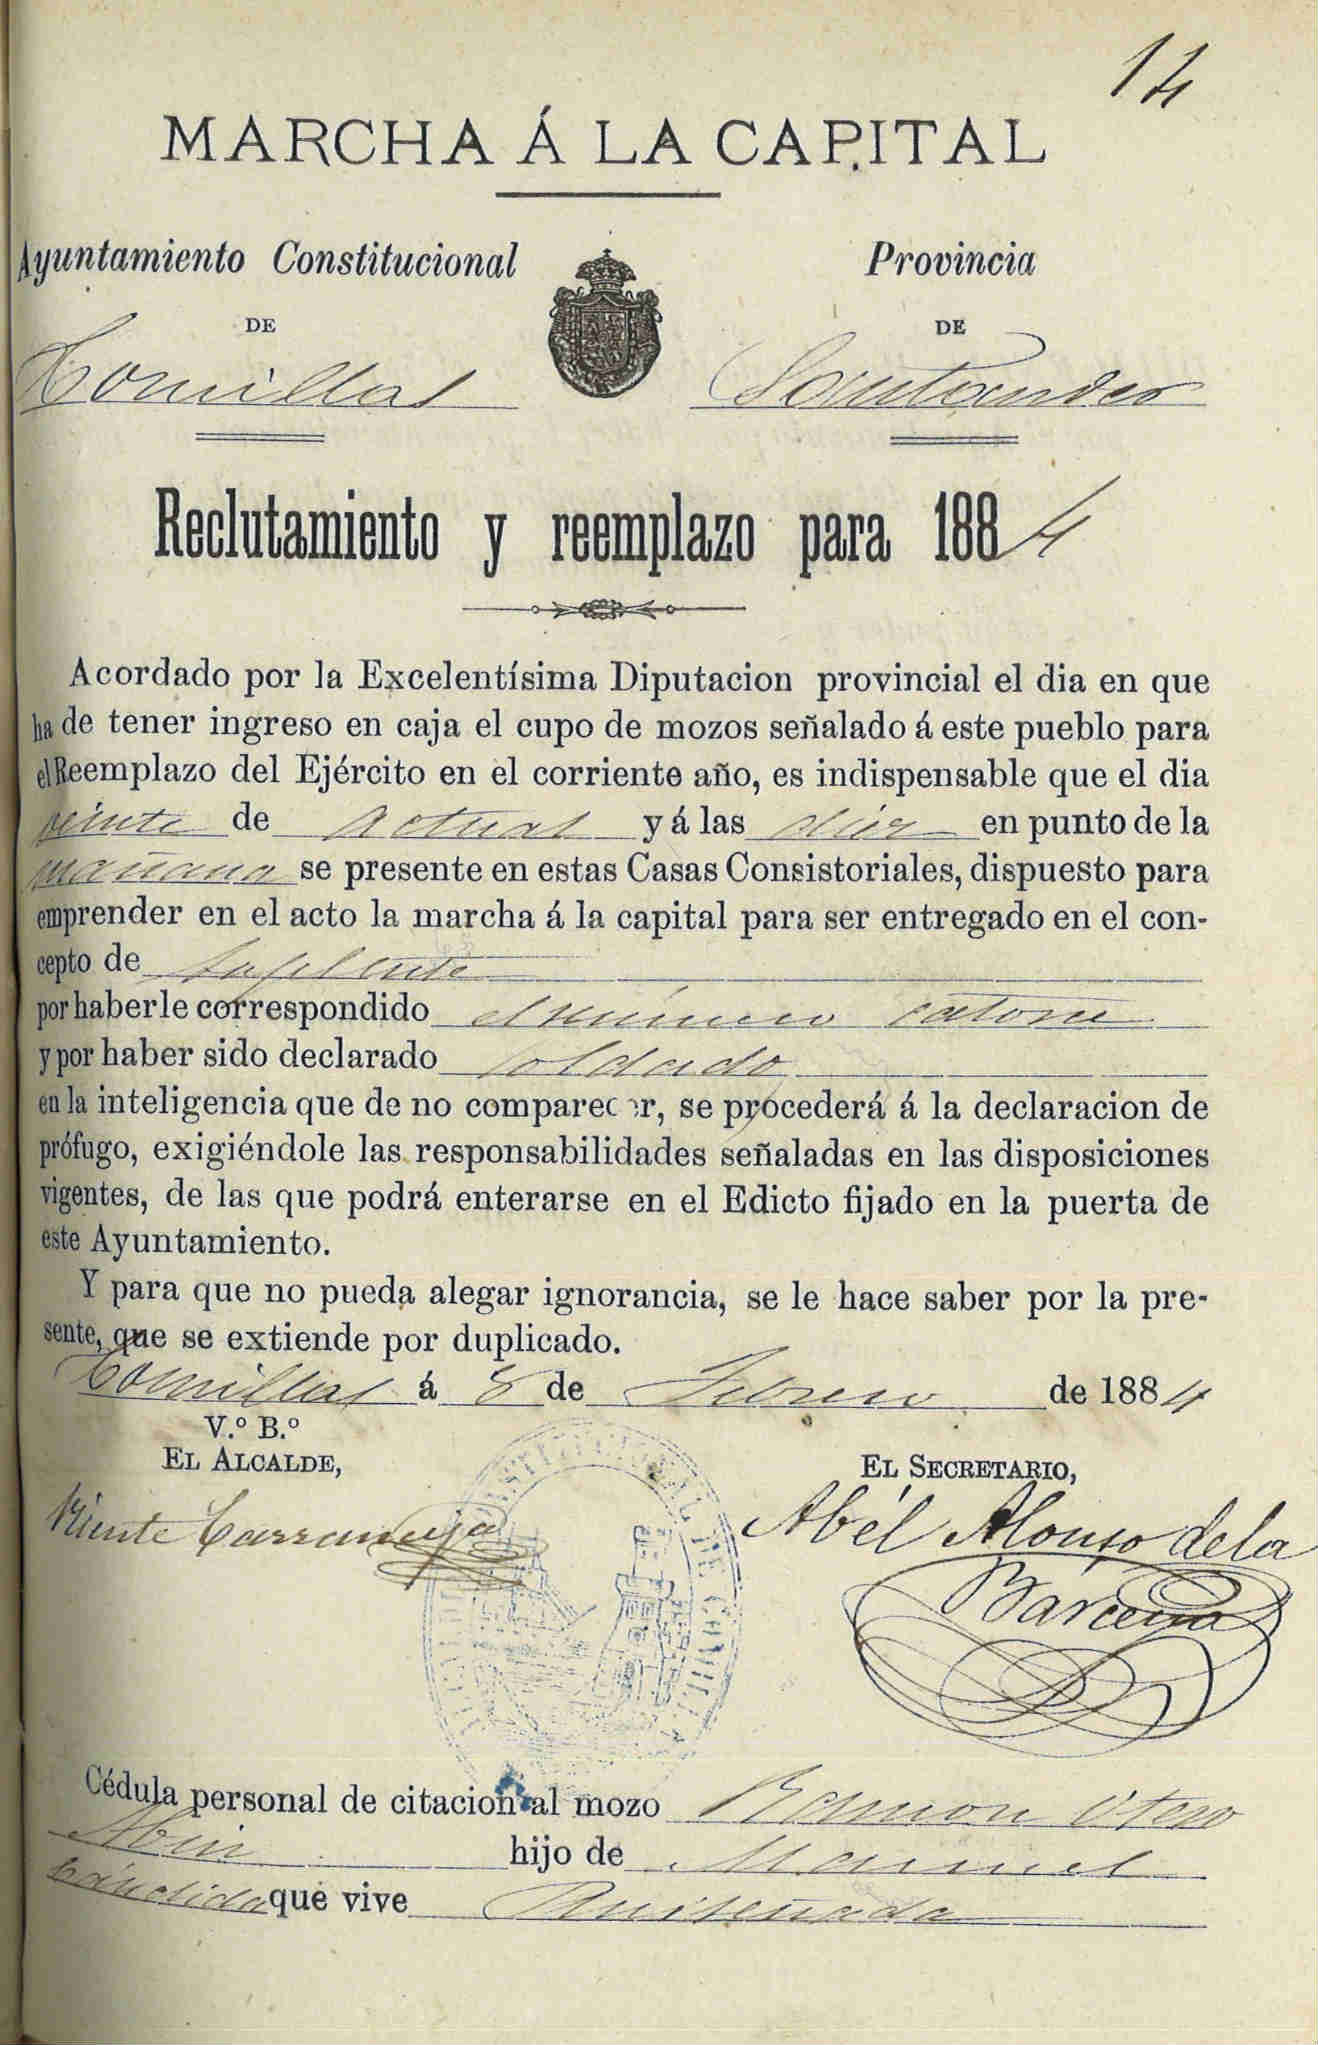 14
MARCHA Á LA CAPITAL
Ayuntamiento Constitucional
Provincia
DE
DE
Comillas
Santander
Reclutamiento y reemplazo para 1884
Acordado por la Excelentísima Diputacion provincial el dia en que
ha de tener ingreso en caja el cupo de mozos señalado á este pueblo para
el Reemplazo del Ejército en el corriente año, es indispensable que el dia
veinte de actual y á las diez en punto de la
mañana se presente en estas Casas Consistoriales, dispuesto para
emprender en el acto la marcha á la capital para ser entregado en el con-
cepto de suplente
por haberle correspondido el número catorce
y por haber sido declarado soldado
en la inteligencia que de no comparecer, se procederá á la declaracion de
prófugo, exigiéndole las responsabilidades señaladas en las disposiciones
vigentes, de las que podrá enterarse en el Edicto fijado en la puerta de
este Ayuntamiento.
Y para que no pueda alegar ignorancia, se le hace saber por la pre-
sente, que se extiende por duplicado.
Comillas á 8 de Febrero de 1884
V.º B.º
EL ALCALDE,
EL SECRETARIO,
Vicente Carranceja
Abél Alonso de la
Barcena
Cédula personal de citacion al mozo Ramon Otero
Abin hijo de Manuel
Cándida que vive Ruiseñada